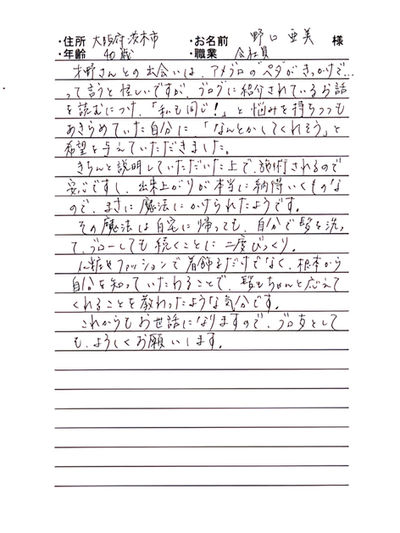 ・住所 大阪府茨木市 ・お名前 野口 亜美 様
・年齢 40歳 ・職業 会社員
才野さんとの出会いは、アメブロの"ペタ"がきっかけで…
って言うと怪しいですが、ブログに紹介されているお話
を読むにつけ、「私も同じ!」と悩みを持ちつつも
あきらめていた自分に、「なんとかしてくれそう」と
希望を与えていただきました。
きちんと説明していただいた上で、施術されるので
安心ですし、出来上がりが本当に納得いくものな
ので、まさに魔法にかけられたようです。
その魔法は自宅に帰っても、自分で髪を洗っ
て、ブローしても続くことに二度びっくり。
化粧やファッションで着飾るだけでなく、根本から
自分を知っていたわることで、髪もちゃんと応えて
くれることを教わったような気分です。
これからもお世話になりますので、ブロ友として
も、よろしくお願いします。